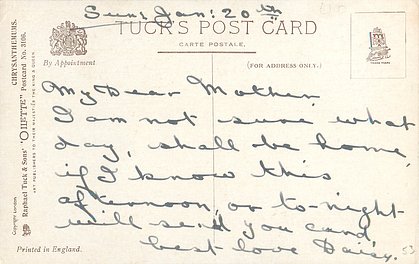 Sun; Jan: 20th
TUCK'S POST CARD
CARTE POSTALE.
By Appointment.
(FOR ADDRESS ONLY.)
CHRYSANTHEMUMS.
Raphael Tuck & Sons' "OILETTE" Postcard No. 3196.
ART PUBLISHERS TO THEIR MAJESTIES THE KING & QUEEN
Copyright
My Dear Mother,
I am not sure what
day, shall be home,
if I know this
afternoon, or to-night
will send you card,
best love Daisy.
Printed in England.